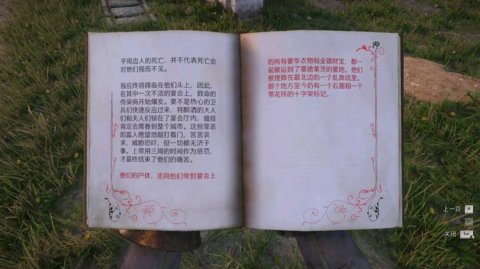 乎周边人的死亡，并不代表死亡会
对他们视而不见。
报应终将降临在他们头上，因此，
在其中一次不洁的宴会上，致命的
传染病开始爆发。要不是热心的卫
兵们快速反应过来，将醉酒的大人
们和夫人们锁在了宴会厅内，瘟疫
肯定会席卷到整个城市。这些罪恶
的富人绝望地敲打着门，苦苦哀
求、威胁恐吓，但一切都无济于
事。上帝用三周的时间作为惩罚，
才最终结束了他们的痛苦。
他们的尸体，连同他们带到宴会上
的所有奢华衣物和金银财宝，都一
起被运到了塞德莱茨的墓地。他们
被埋葬在最北边的一个乱葬坑里。
那个地方至今仍有一个石圈和一个
带花环的十字架标记。
上一页
关闭 Esc